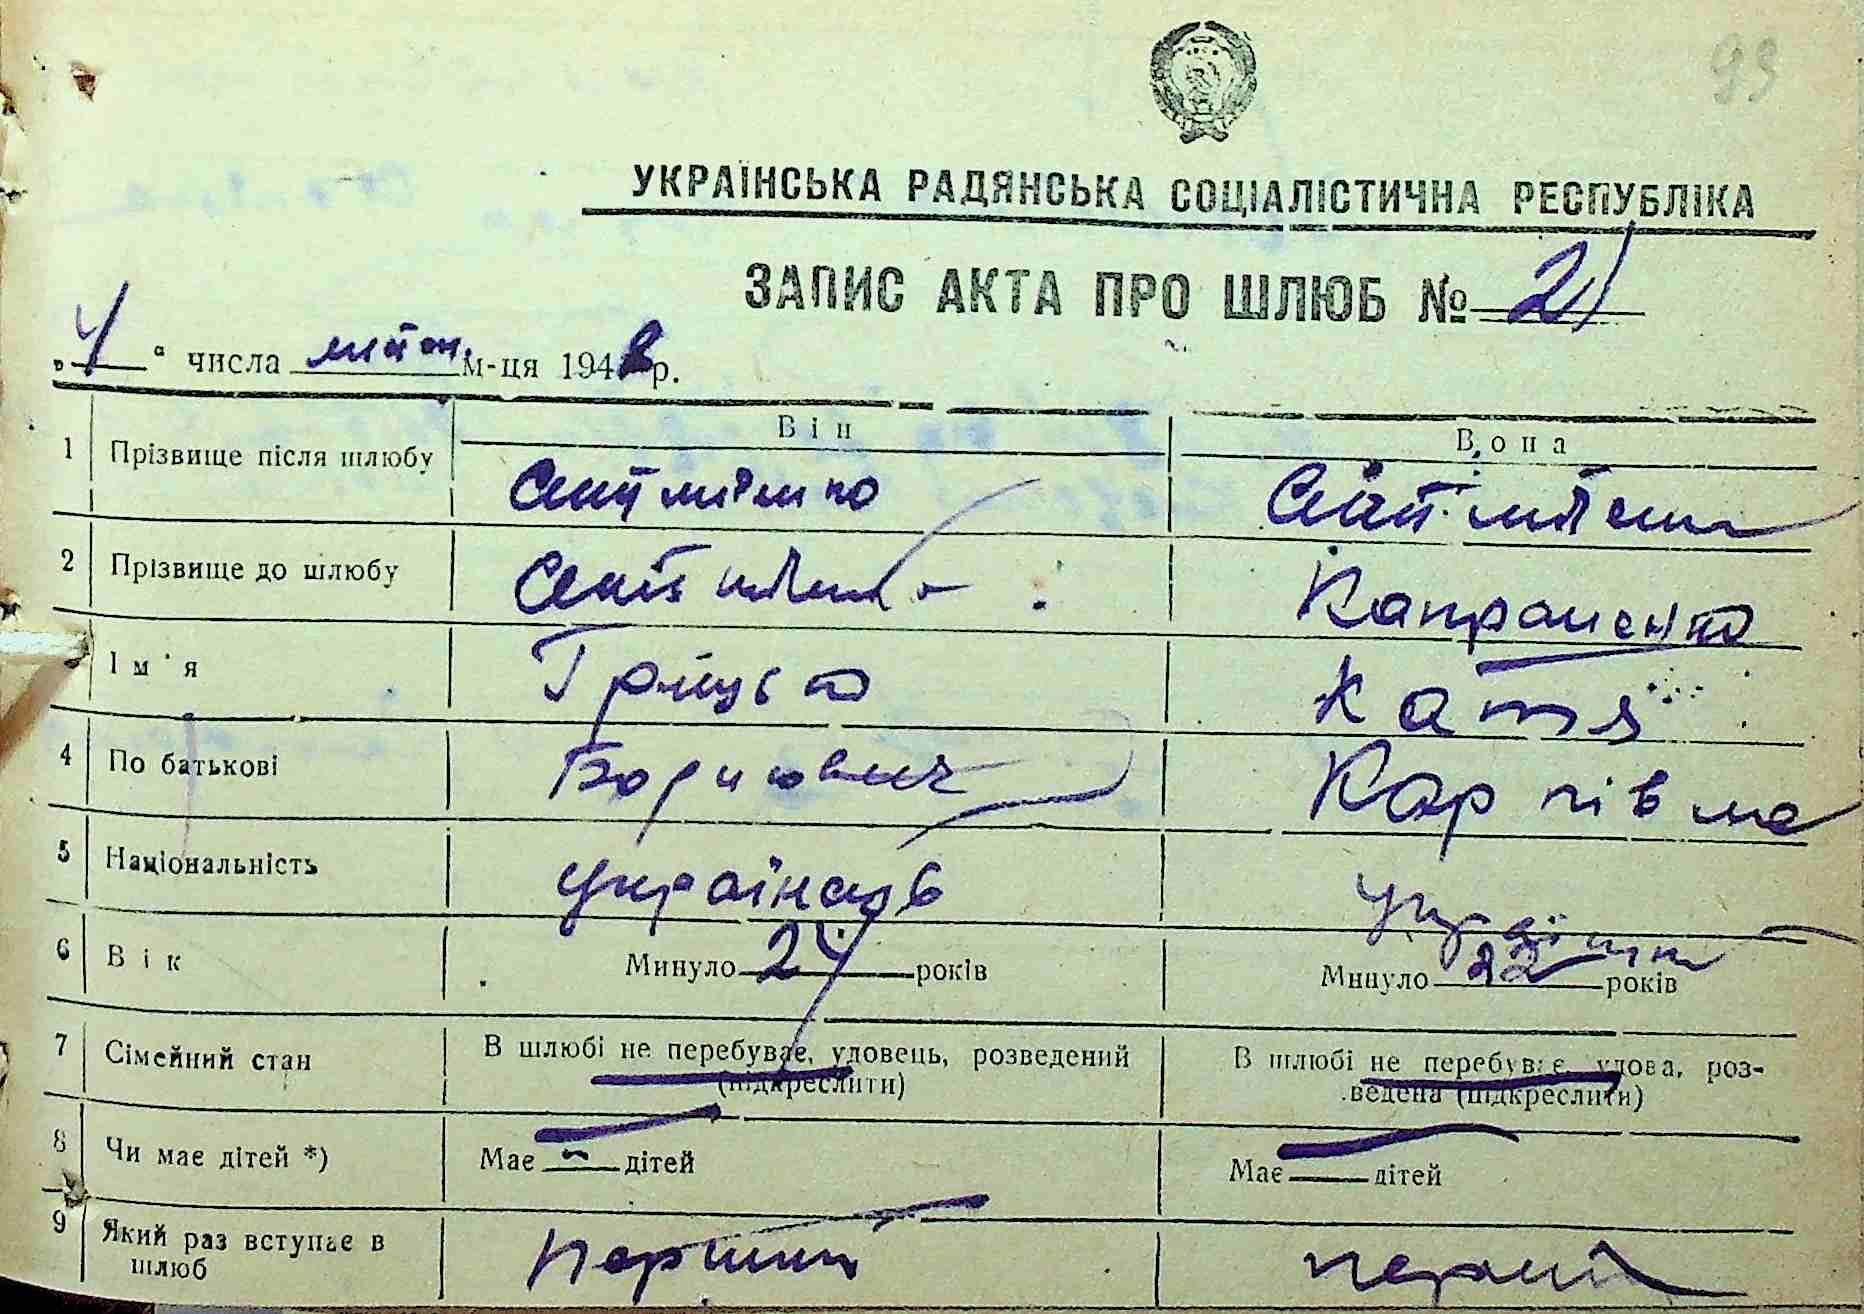 93
УКРАЇНСЬКА РАДЯНСЬКА СОЦІАЛІСТИЧНА РЕСПУБЛІКА
ЗАПИС АКТА ПРО ШЛЮБ № 21
„ 4 “ числа м-ця 194 р.
Він Вона
1 Прізвище після шлюбу
2 Прізвище до шлюбу
Ім'я Грицько Катя
4 По батькові Борисович Карпівна
5 Національність українець
6 Вік Минуло 24 років Минуло 22 років
7 Сімейний стан В шлюбі не перебуває, удовець, розведений В шлюбі не перебуває, удова, роз-
(підкреслити) ведена (підкреслити)
8 Чи має дітей *) Має — дітей Має — дітей
9 Який раз вступає в перший
шлюб